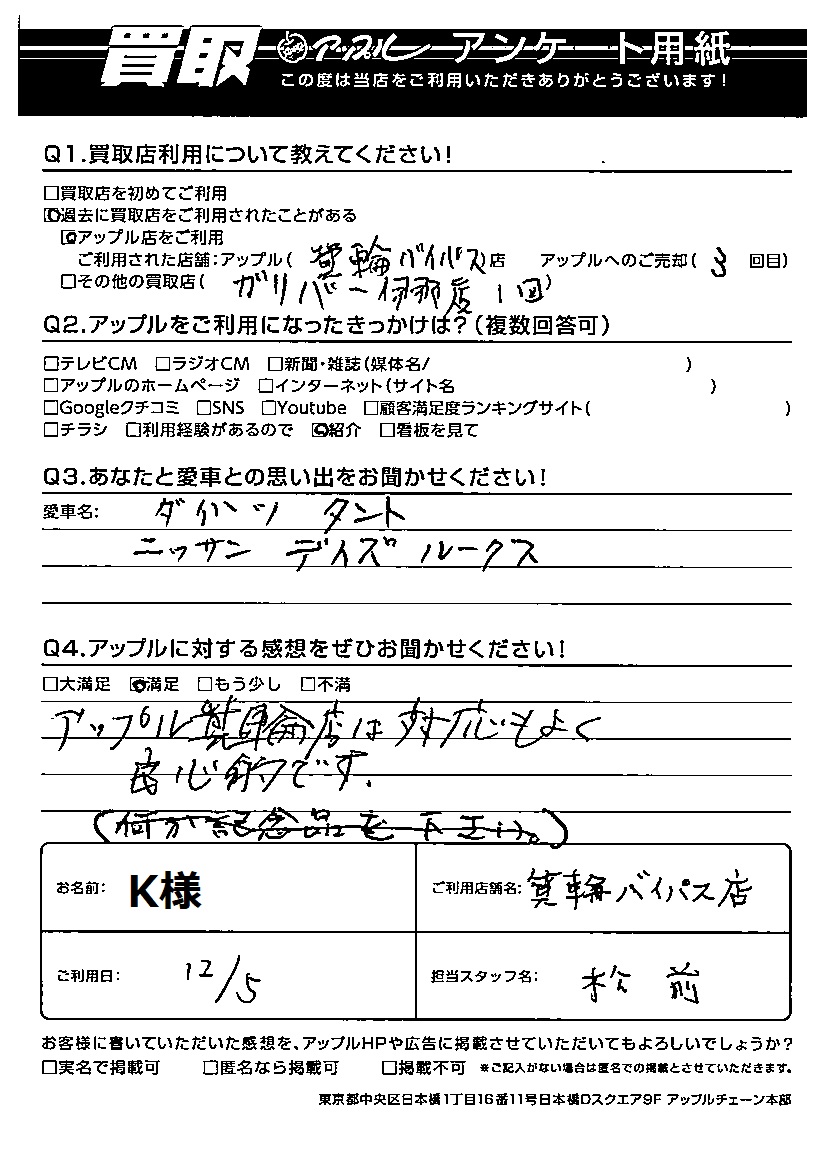 買取 アップル アンケート用紙
この度は当店をご利用いただきありがとうございます!
Q1.買取店利用について教えてください!
□買取店を初めてご利用
□過去に買取店をご利用されたことがある
□アップル店をご利用
ご利用された店舗:アップル( 箕輪バイパス )店 アップルへのご売却( 3 回目)
□その他の買取店( ガリバー伊那店 1回 )
Q2.アップルをご利用になったきっかけは?(複数回答可)
□テレビCM □ラジオCM □新聞・雑誌(媒体名/ )
□アップルのホームページ □インターネット(サイト名 )
□Googleクチコミ □SNS □Youtube □顧客満足度ランキングサイト( )
□チラシ □利用経験があるので □紹介 □看板を見て
Q3.あなたと愛車との思い出をお聞かせください!
愛車名: ダイハツ タント
ニッサン デイズ ルークス
Q4.アップルに対する感想をぜひお聞かせください!
□大満足 □満足 □もう少し □不満
アップル箕輪店は対応もよく
良心的です.
(何か記念品を下さい。)
お名前: K様 ご利用店舗名: 箕輪バイパス店
ご利用日: 12/5 担当スタッフ名: 松前
お客様に書いていただいた感想を、アップルHPや広告に掲載させていただいてもよろしいでしょうか?
□実名で掲載可 □匿名なら掲載可 □掲載不可 *ご記入がない場合は匿名での掲載とさせていただきます。
東京都中央区日本橋1丁目16番11号日本橋Dスクエア9F アップルチェーン本部